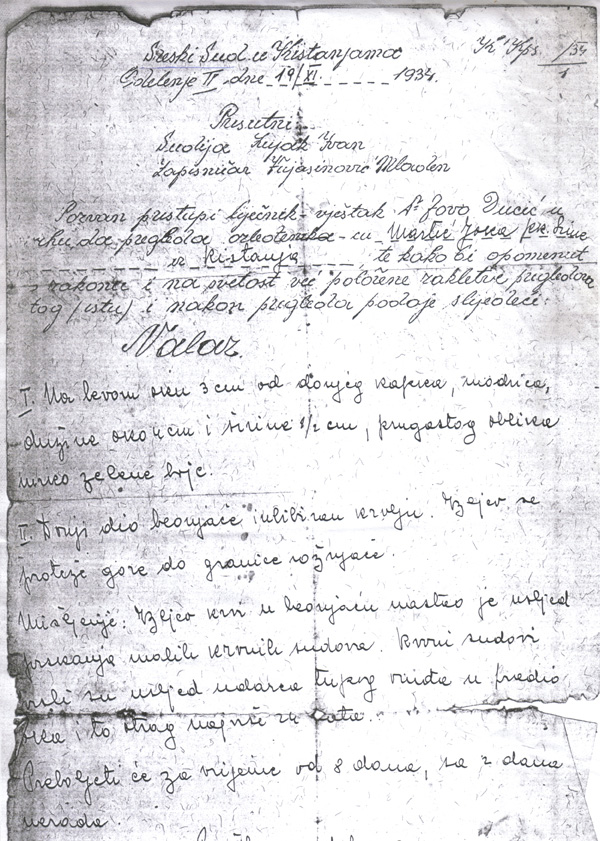 Sreski Sud u Kistanjama
Kps /34
Odelenje II dne 19/XI. 1934.
1
Prisutni:
Sudija Lujak Ivan
Zapisničar Kujasinović Mladen
Pozvan pristupi liječnik-vještak Dr Jovo Ducić u
svrhu da pregleda ozleđenika-cu Martić Jova pok. Sime
iz Kistanja te kako bi opomenut
zakonu i na svetost već položene zakletve pregledao
tog (istu) i nakon pregleda podaje slijedeći:
Nalaz.
I. Na levom oku 3 cm od donjeg kapka, modrica,
dužine oko 4 cm i širine 1/2 cm, prugastog oblika
zelene boje.
II. Donji dio beonjače krvlju. Izljev se
proteže gore do granice rožnjače.
Mišljenje: Izljev krvi u beonjaču nastao je usljed
prskanja malih krvnih sudova. Krvni sudovi
su usljed udarca tupog u predio
oka i to trag za rata.
Preboljeti će za vrijeme od 8 dana, sa 2 dana
nerada.